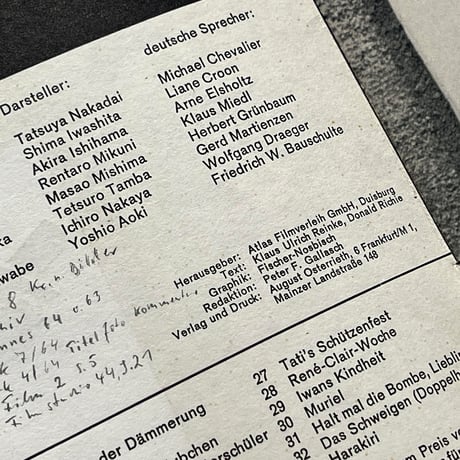 Darsteller:
deutsche Sprecher:
Tatsuya Nakadai
Michael Chevalier
Shima Iwashita
Liane Croon
Akira Ishihama
Arne Elsholtz
Rentaro Mikuni
Klaus Miedl
Masao Mishima
Herbert Grünbaum
Tetsuro Tamba
Gerd Martienzen
Ichiro Nakaya
Wolfgang Draeger
Yoshio Aoki
Friedrich W. Bauschulte
Herausgeber: Atlas Filmverleih GmbH, Duisburg
Text: Klaus Ulrich Reinke, Donald Richie
Graphik: Fischer-Nosbisch
Redaktion: Peter F. Gallasch
Verlag und Druck: August Osterrieth, 6 Frankfurt/M 1,
Mainzer Landstraße 148
8 Bilder
64 o. 63
7/64
4/64 Titelfoto
Film 2 S. 5
Filmstudio 44, S. 21
der Dämmerung
27 Tati's Schützenfest
28 René-Clair-Woche
29 Iwans Kindheit
30 Muriel
31 Halt mal die Bombe, Liebling
32 Das Schweigen (Doppelh
Harakiri